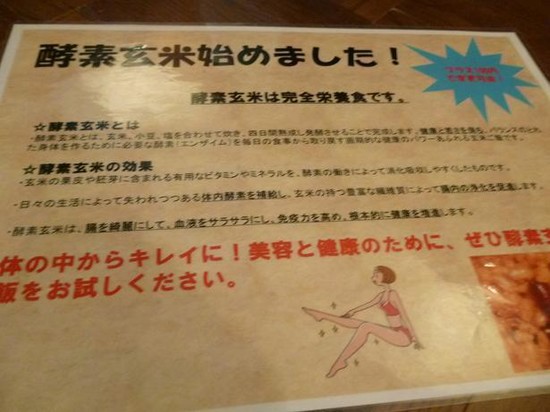 酵素玄米始めました！
プラス100円
で変更可能！
酵素玄米は完全栄養食です。
☆酵素玄米とは
・酵素玄米とは、玄米、小豆、塩を合わせて炊き、四日間熟成し発酵させることで完成します。健康と若さを保ち、バランスのとれ
た身体を作るために必要な酵素（エンザイム）を毎日の食事から取り戻す画期的な健康のパワー乳ふれる玄米ご飯です。
☆酵素玄米の効果
・玄米の果皮や胚芽に含まれる有用なビタミンやミネラルを、酵素の働きによって消化吸収しやすくしたものです。
・日々の生活によって失われつつある体内酵素を補給し、玄米の持つ豊富な繊維質によって腸内の浄化を促進します。
・酵素玄米は、腸を綺麗にして、血液をサラサラにし、免疫力を高め、根本的に健康を増進します。
体の中からキレイに！美容と健康のために、ぜひ酵素玄
飯をお試しください。